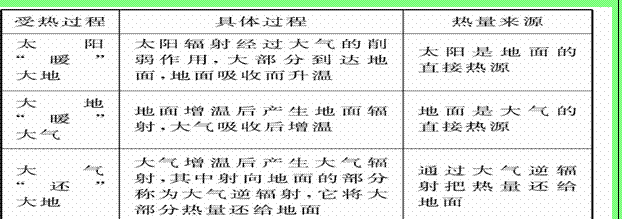 受热过程 具体过程 热量来源
太阳 太阳辐射经过大气的削
“暖” 弱作用,大部分到达地 太阳是地面的
大地 面,地面吸收而升温 直接热源
大地 地面增温后产生地面辐 地面是大气的
“暖” 射,大气吸收后增温 直接热源
大气
大气 大气增温后产生大气辐
“还” 射,其中射向地面的部分 通过大气逆辐
大地 称为大气逆辐射,它将大 射把热量还给
部分热量还给地面 地面